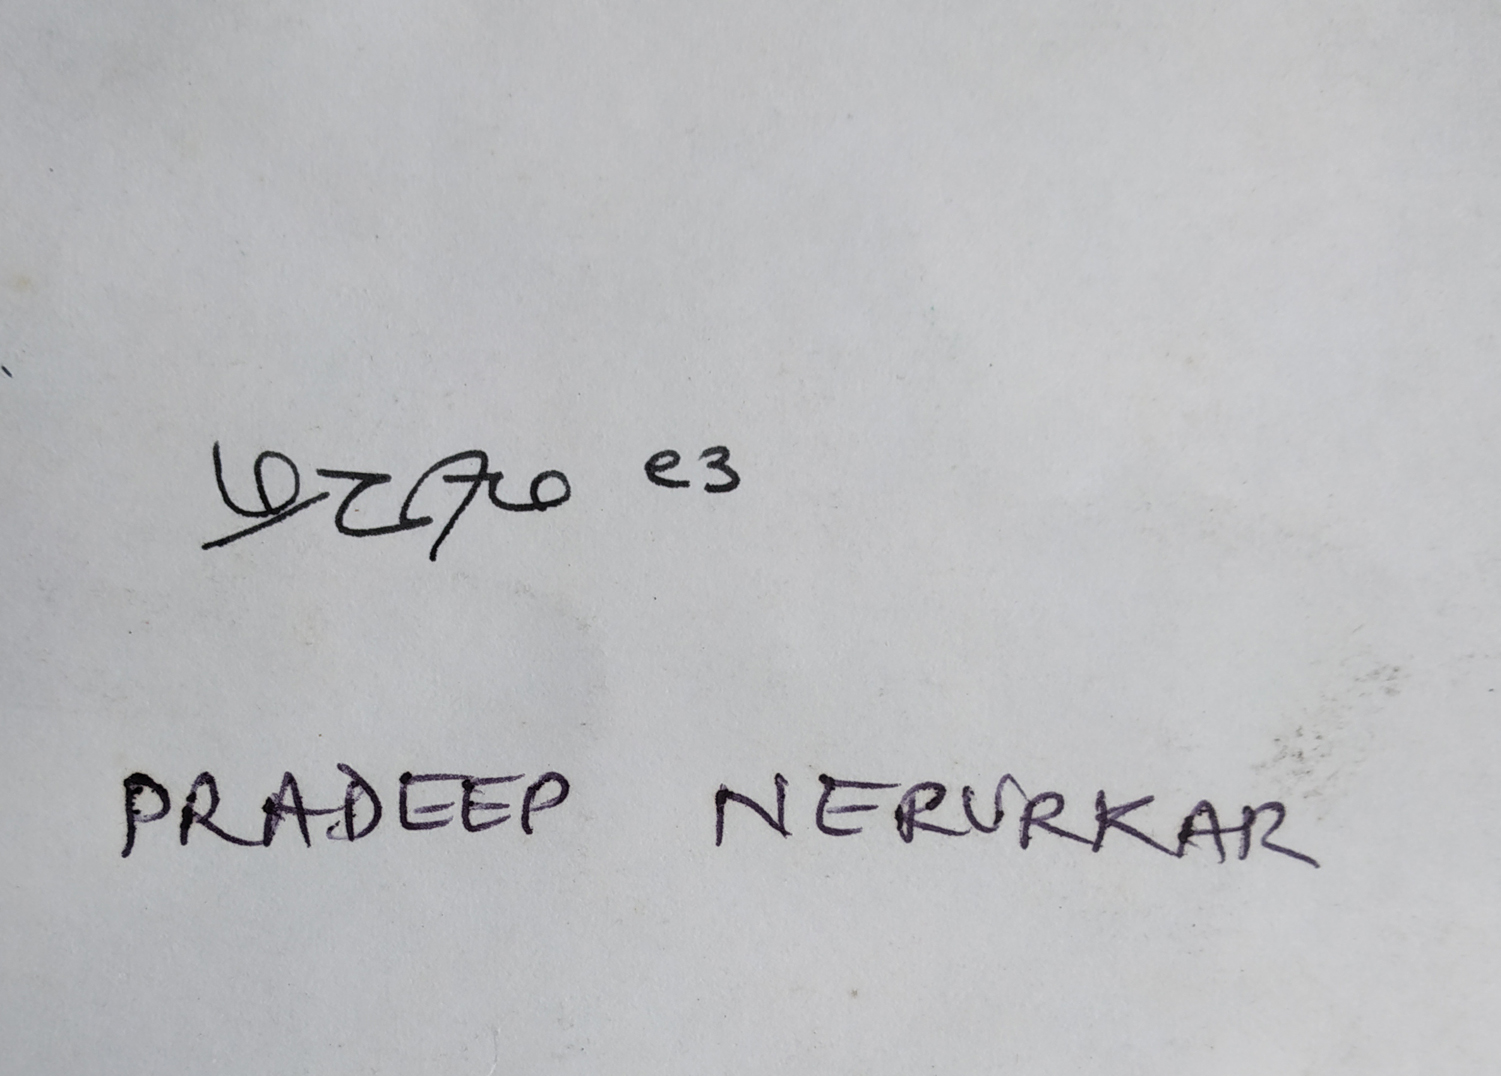 e3
PRADEEP NERURKAR